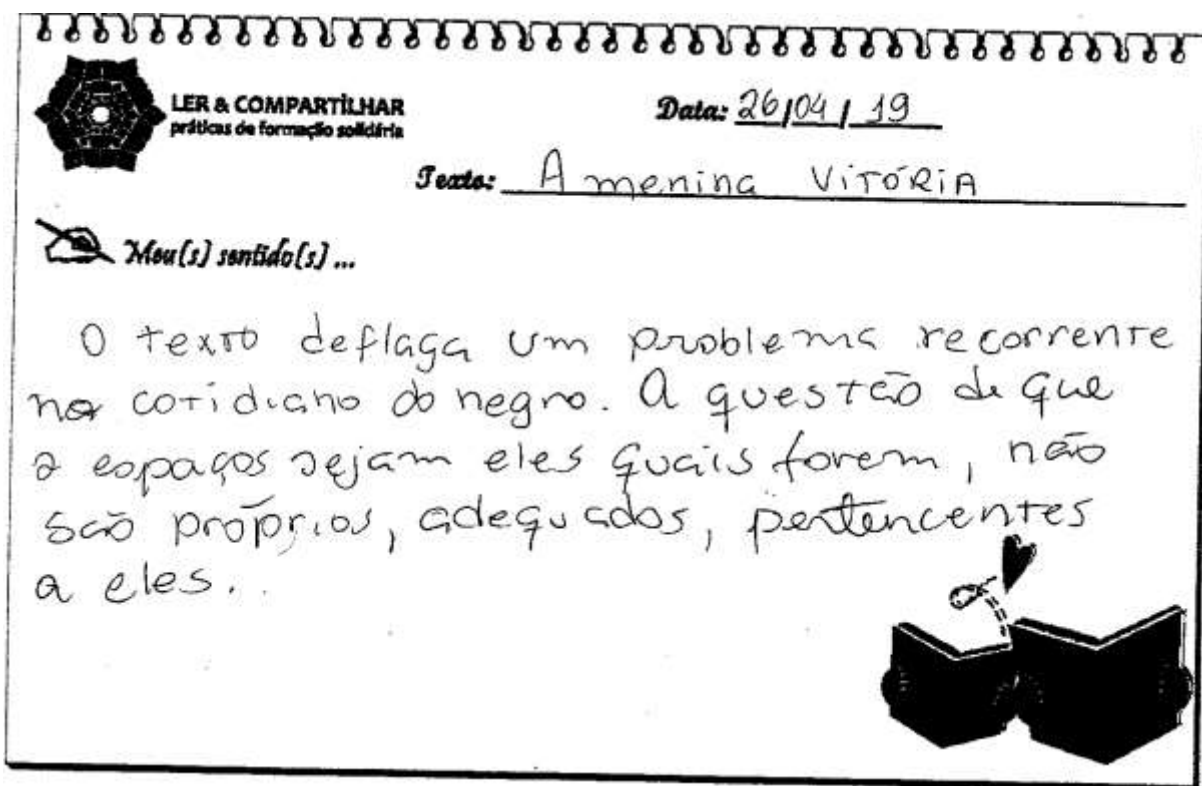 LER & COMPARTILHAR
práticas de formação solidária
Data: 26/04/19
Texto: A menina VITÓRIA
Meu(s) sentido(s)...
O texto deflaga um problema recorrente
no cotidiano do negro. A questão de que
a espaços sejam eles quais forem, não
são próprios, adequados, pertencentes
a eles..